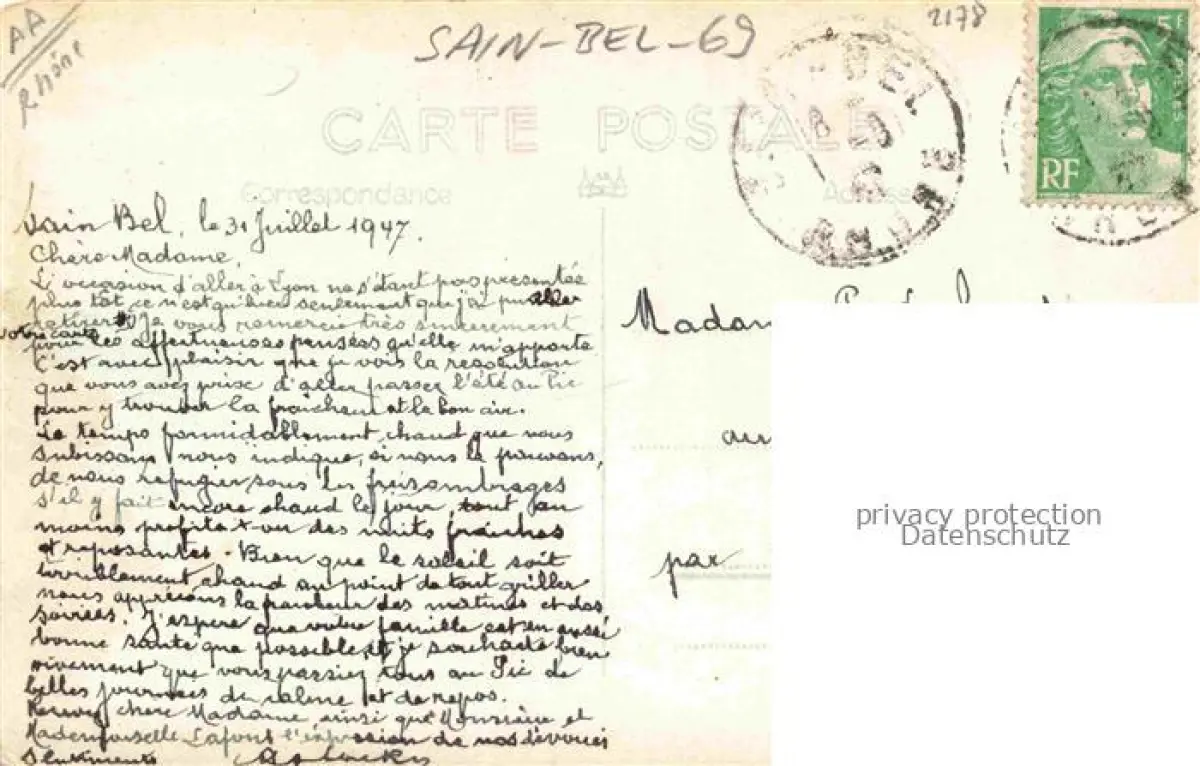 AA
Rhône
SAIN-BEL-69
2178
5F
RF
CARTE POSTALE
Correspondance
Adresse
RHONE
Sain Bel, le 31 Juillet 1947.
Chère Madame,
L'occasion d'aller à Lyon ne s'étant pas présentée
plus tôt ce n'est qu'hier seulement que j'ai pu aller
retirer Je vous remercie très sincèrement
votre carte
pour les affectueuses pensées qu'elle m'apporte
C'est avec plaisir que je vois la resolution
que vous avez prise d'aller passer l'été au Pic
pour y trouver la fraîcheur et le bon air.
Le temps formidablement chaud que nous
subissons nous indique, si nous le pouvons,
de nous refugier sous les frais ombrages
s'il y fait encore chaud le jour, tout au
moins profite-t-on des nuits fraiches
et reposantes. Bien que le soleil soit
terriblement chaud au point de tout griller
nous apprécions la fraicheur des matinées et des
soirées. J'espère que votre famille est en aussi
bonne santé que possible, et je souhaite bien
vivement que vous passiez tous au Pic de
belles journées de calme et de repos.
Recevez chère Madame ainsi que Monsieur et
Mademoiselle Lafont l'expression de nos dévoués
Sentiments
Madam
par
privacy protection
Datenschutz